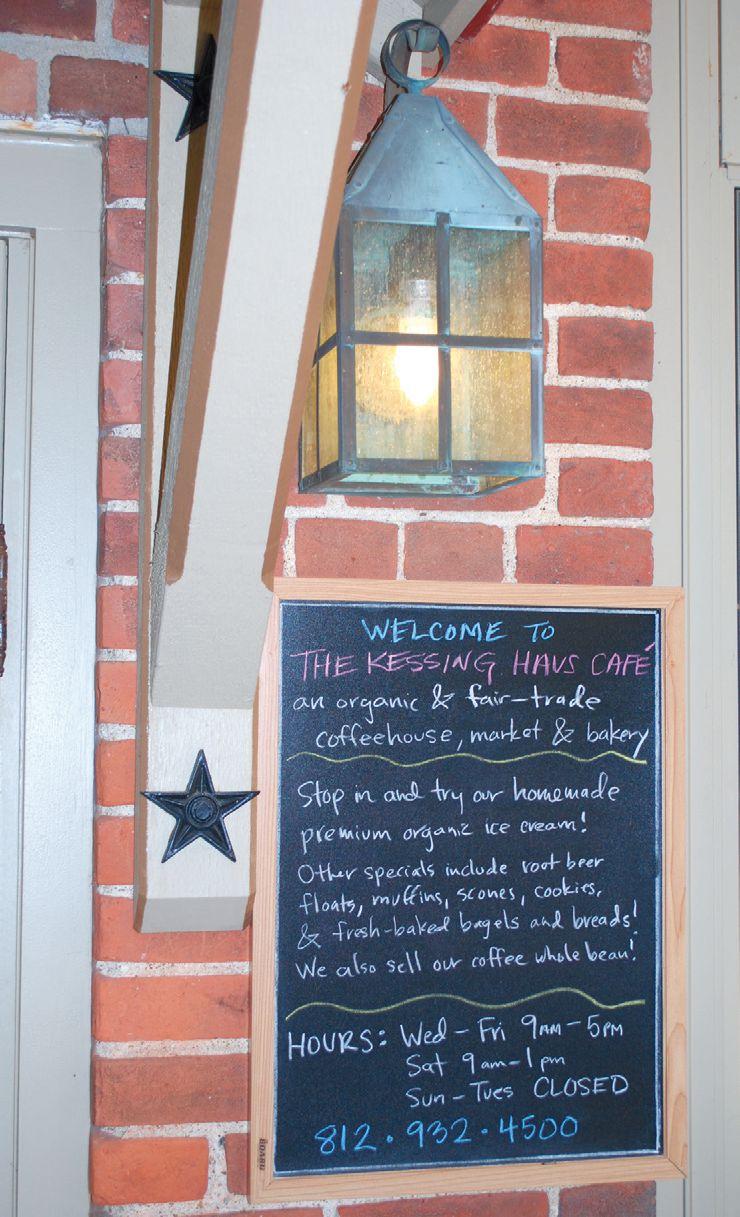 WELCOME TO
THE KESSING HAUS CAFÉ
an organic & fair-trade
coffeehouse, market & bakery
Stop in and try our homemade
premium organic ice cream!
Other specials include root beer
floats, muffins, scones, cookies,
& fresh-baked bagels and breads!
We also sell our coffee whole bean!
HOURS: Wed - Fri 9AM - 5PM
Sat 9am - 1pm
Sun - Tues CLOSED
812 · 932 · 4500
BOARD